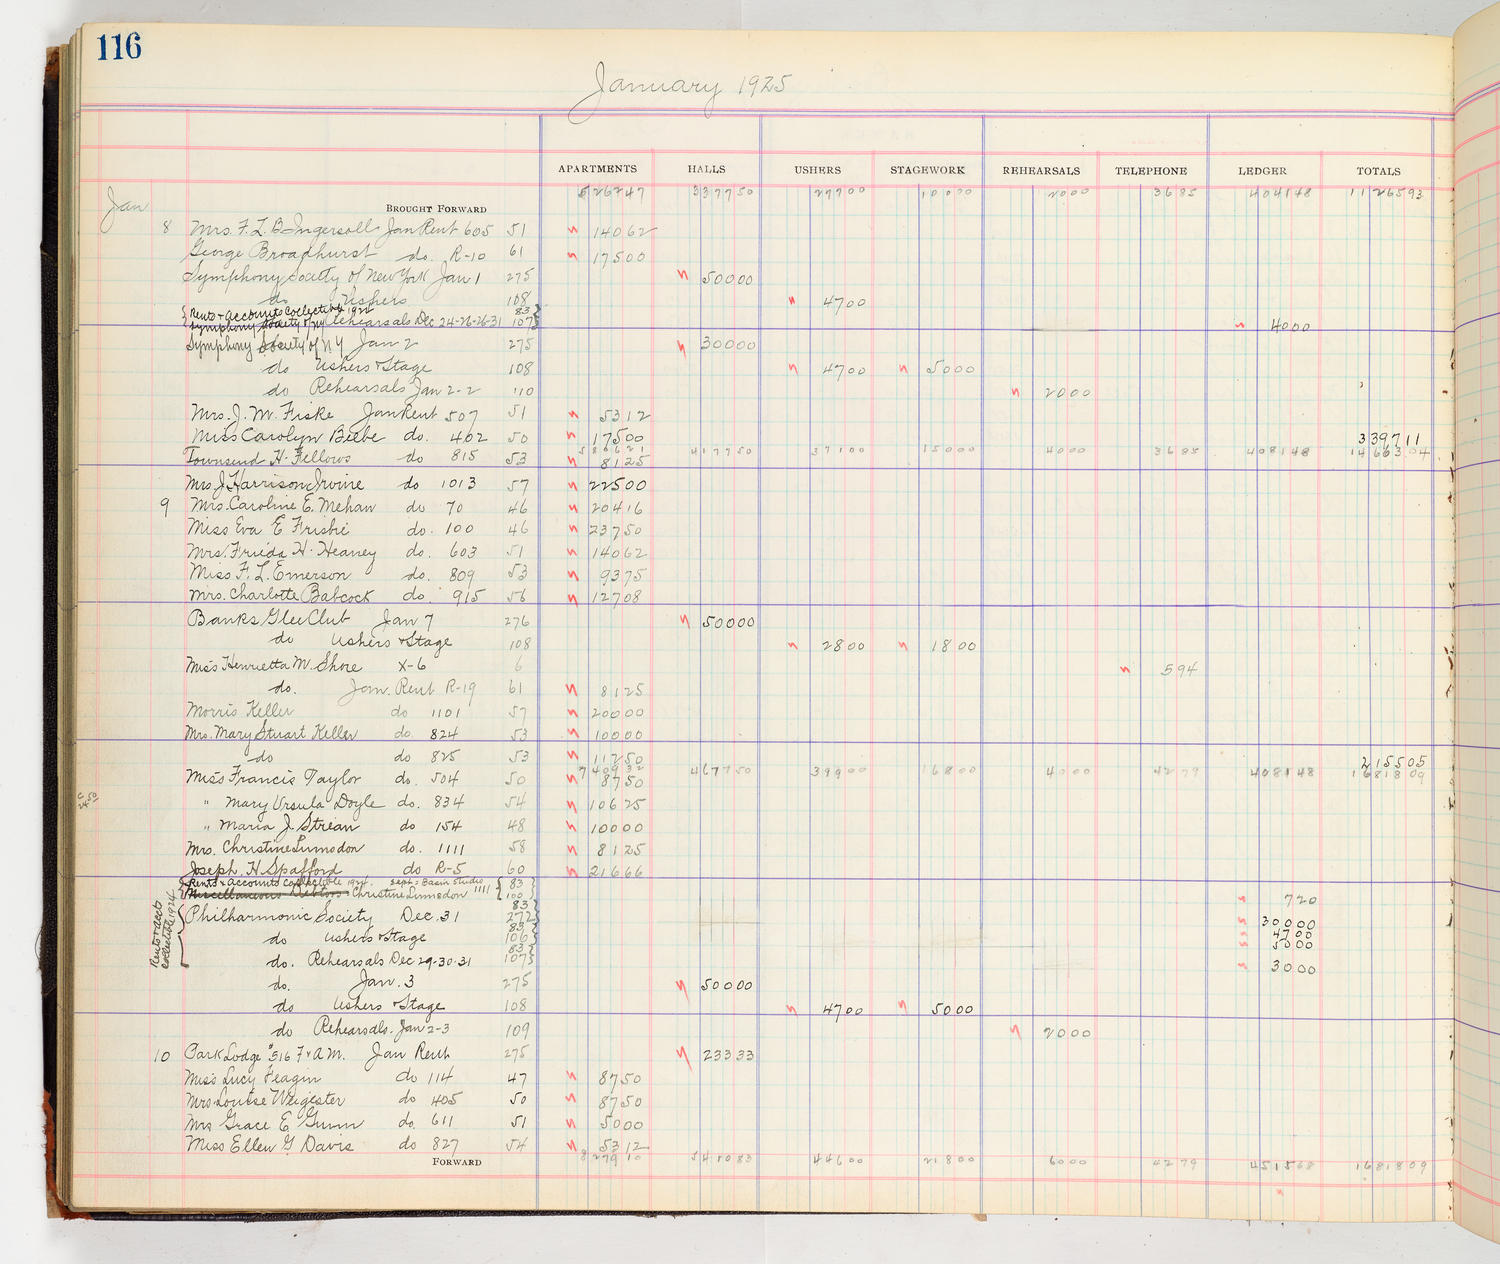 116
January 1925
APARTMENTS HALLS USHERS STAGEWORK REHEARSALS TELEPHONE LEDGER TOTALS
Jan BROUGHT FORWARD 526747 337750 27700 10000 2000 3685 404148 1126593
8 Mrs. F. L. B. Ingersoll Jan Rent 605 51 14062
George Broadhurst do. R-10 61 17500
Symphony Society of New York Jan 1 275 50000
do Ushers 108 4700
Rents & accounts Collectible 1924 83
Symphony Society of NY Rehearsals Dec 24-26-26-31 107 4000
Symphony Society of N Y Jan 2 275 30000
do Ushers & Stage 108 4700 5000
do Rehearsals Jan 2-2 110 2000
Mrs. J. M. Fiske Jan Rent 507 51 5312
Miss Carolyn Beebe do. 402 50 17500 339711
586621 417750 37100 15000 4000 3685 408148 1466304
Townsend H. Fellows do 815 53 8125
Mrs J Harrison Irvine do 1013 57 22500
9 Mrs. Caroline E. Mehan do 70 46 20416
Miss Eva E Frisbie do. 100 46 23750
Mrs. Frieda H. Heaney do. 603 51 14062
Miss F. L. Emerson do. 809 53 9375
Mrs. Charlotte Babcock do. 915 56 12708
Banks Glee Club Jan 7 276 50000
do Ushers & Stage 108 2800 1800
Miss Henrietta M. Shore X-6 6 594
do. Jan. Rent R-19 61 8125
Morris Keller do 1101 57 20000
Mrs. Mary Stuart Keller do. 824 53 10000
do do 825 53 11250 215505
740932 467750 39900 16800 4000 4279 408148 1681809
Miss Francis Taylor do. 504 50 8750
c 24 50
" Mary Ursula Doyle do. 834 54 10625
" Maria J. Strean do 154 48 10000
Mrs. Christine Lumsdon do. 1111 58 8125
Joseph H Spafford do R-5 60 21666
Rents & accounts Collectible 1924. Studio 83
Miscellaneous Debtors Christine Lumsdon 1111 100 720
Rents & accts collectible 1924
83
Philharmonic Society Dec. 31 272 30000
83 4700
do Ushers & Stage 106 5000
83
do. Rehearsals Dec 29-30-31 107 3000
do. Jan. 3 275 50000
do Ushers & Stage 108 4700 5000
do Rehearsals. Jan 2-3 109 2000
10 Park Lodge #516 F & A M. Jan Rent 275 23333
Miss Lucy Feagin do 114 47 8750
Mrs Louise Weigester do 405 50 8750
Mrs Grace E Gunn do. 611 51 5000
Miss Ellen G. Davis do 827 54 5312
FORWARD 827910 541083 44600 21800 6000 4279 451568 1681809